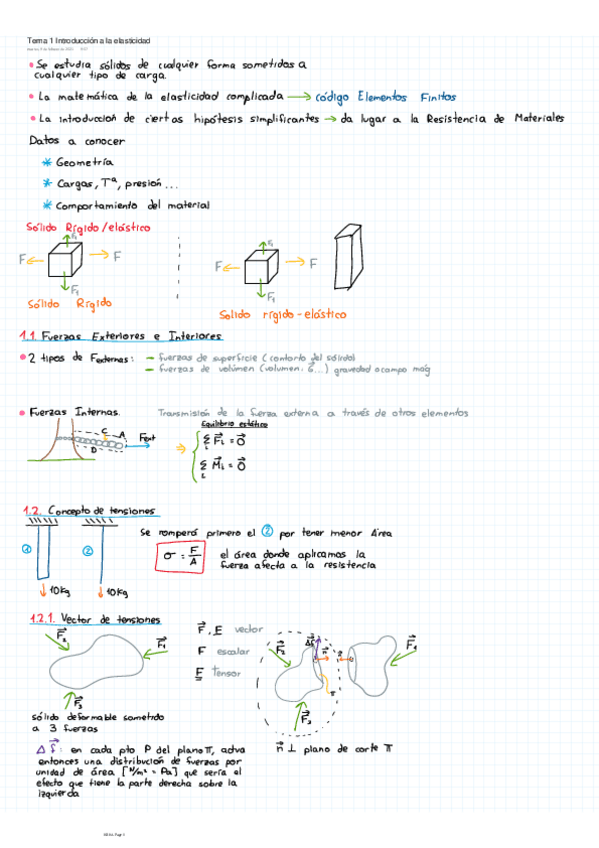 Tema 1 Introducción a la elasticidad
• Se estudia sólidos de cualquier forma sometidos a
cualquier tipo de carga.
• La matemática de la elasticidad complicada → código Elementos Finitos
• La introduccion de ciertas hipótesis simplificantes → da lugar a la Resistencia de Materiales
Datos a conocer
* Geometría
* Cargas, Tª, presión...
* Comportamiento del material
Sólido Rígido/elástico
F₁ F₁
F F F F
F₁ F₁
Sólido Rígido
Solido rígido-elástico
1.1 Fuerzas Exteriores e Interiores
• 2 tipos de Fexternas: - fuerzas de superficie (contorto del sólido)
- fuerzas de volúmen (volumen, G...) gravedad o campo mag
• Fuerzas Internas. Transmisión de la fuerza externa a través de otros elementos
Equilibrio estático
C A Fext
D
⇒ Σ F⃗i = 0⃗
Σ M⃗i = 0⃗
1.2. Concepto de tensiones
Se romperá primero el ② por tener menor Área
① ② σ = F/A el área donde aplicamos la
fuerza afecta a la resistencia
10kg 10kg
1.2.1. Vector de tensiones
F⃗₂ F⃗₁ F⃗₃
F⃗, F vector
F escalar
F tensor
F⃗₂ Δf⃗ n⃗ π F⃗₁ F⃗₃
sólido deformable sometido
a 3 fuerzas
Δf⃗: en cada pto P del plano π, actua
entonces una distribución de fuerzas por
unidad de área [N/m² = Pa] que sería el
efecto que tiene la parte derecha sobre la
izquierda
n⃗ ⊥ plano de corte π